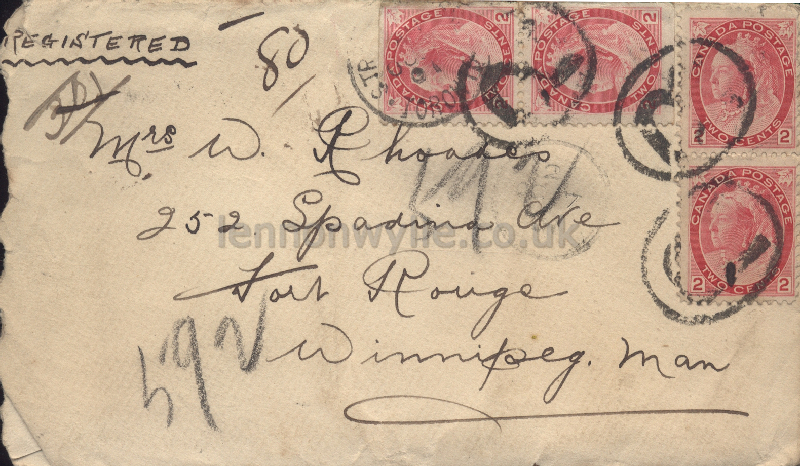 REGISTERED
80
CANADA POSTAGE
2 TWO CENTS 2
CANADA POSTAGE
2 TWO CENTS 2
CANADA POSTAGE
2 TWO CENTS 2
CANADA POSTAGE
2 TWO CENTS 2
Mrs W. Rhoades
252 Spadina Ave
Fort Rouge
Winnipeg. Man
592
lennonwylie.co.uk